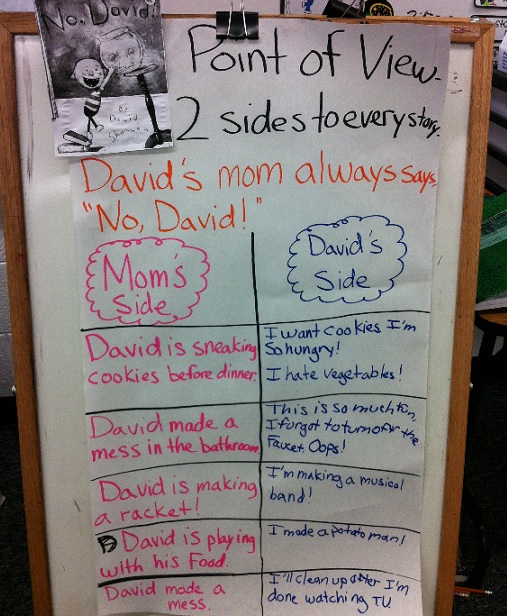 No, David!
By
David
Shannon
Point of View-
2 sides to every story.
David's mom always says,
"No, David!"
Mom's
Side
David's
Side
David is sneaking
cookies before dinner.
I want cookies I'm
So hungry!
I hate vegetables!
David made a
mess in the bathroom
This is so much fun,
I forgot to turn off the
Faucet. Oops!
David is making
a racket!
I'm making a musical
band!
David is playing
with his Food.
I made a potato man!
David made a
mess.
I'll clean up after I'm
done watching TV.